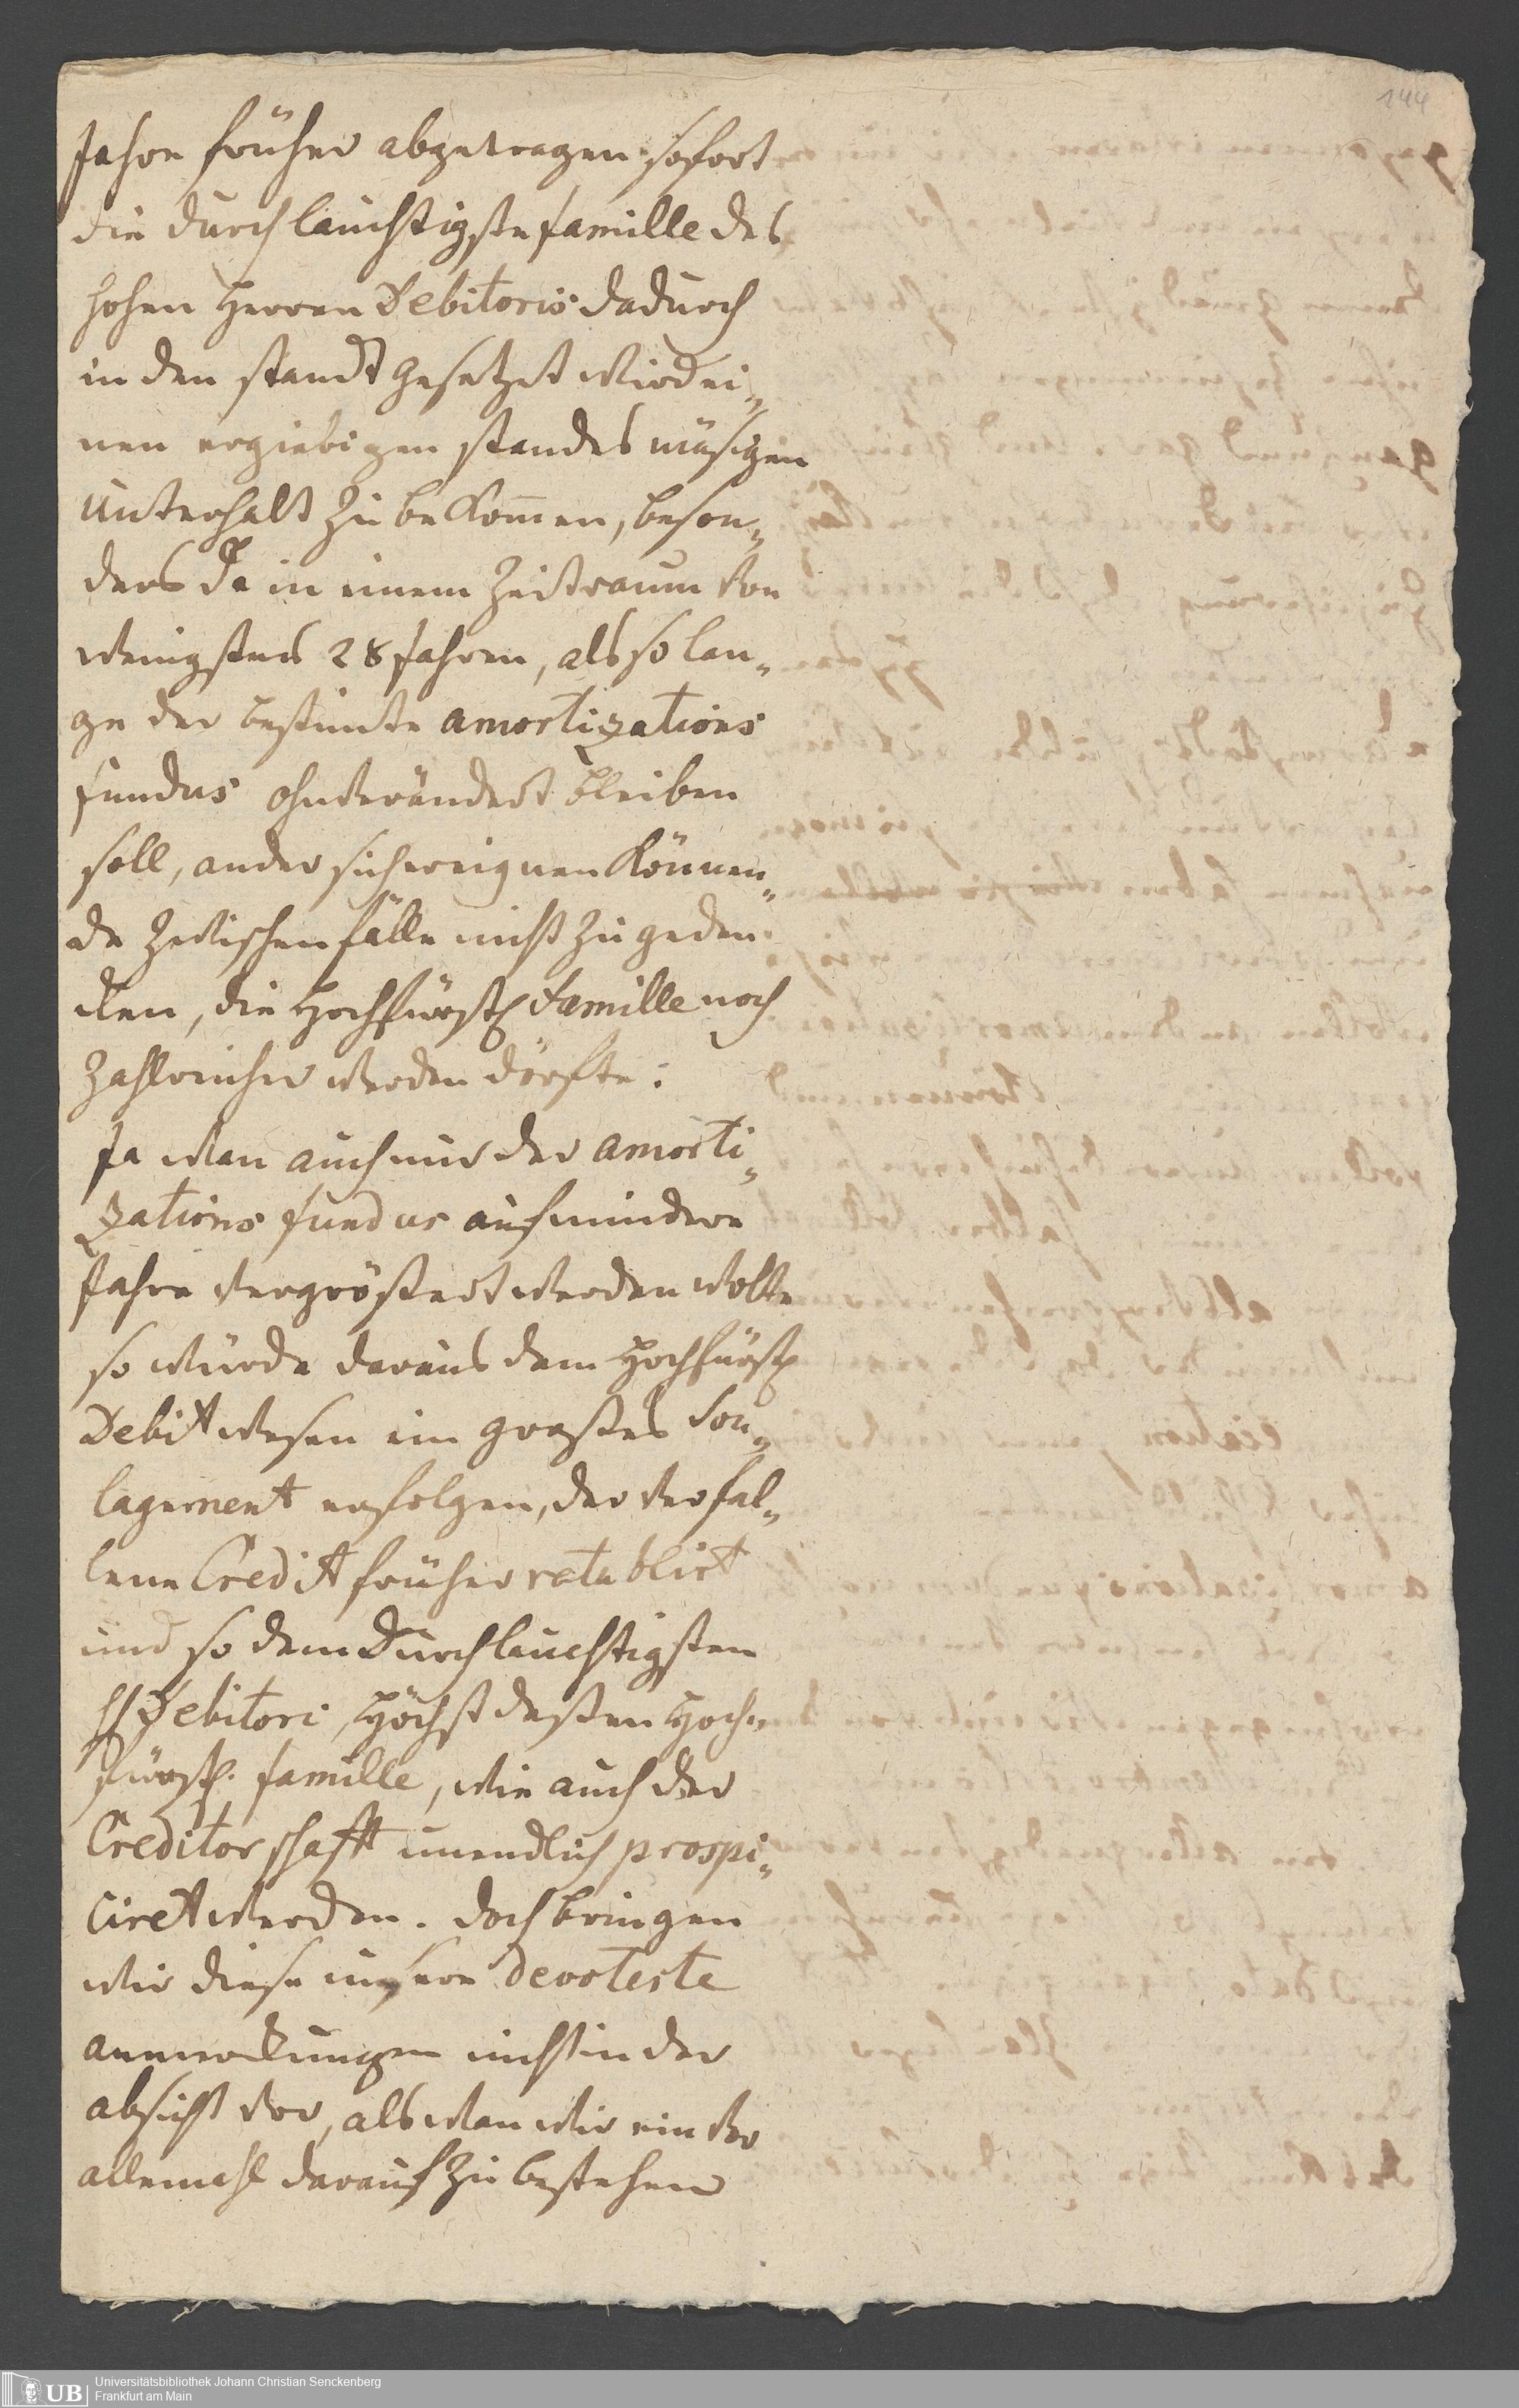 144
Jahre früher abgetragen, sofort
die durchlauchtigste familleˍdes
hohen Herren Debitoris dadurch
in den standt gesetzet wird ei„
nen ergiebigen standes mäsigen
Unterhalt zu bekom̄en, beson„
ders da in einem Zeitraum von
wenigstens 28 Jahren, als so lan„
ge der bestimte amortizations
fundus ohnverändert bleiben
soll, ander sich ereignen können„
de Zwischenfälle nicht zu geden
cken, die Hochfürstl famille noch
Zahlreicher werden dörfte.
Ja wan auch nur der amorti„
zations fundus auf mindere
Jahre vergrößert werden wolte
so würde daraus dem Hochfürstl
Debit wesen ein großes Sou„
lagement erfolgen, der verfal„
lene Credit früher retablirt
und so dem Durchlauchtigsten
H Debitori, Höchst deßen Hoch„
fürstl. famille, wie auch der
Creditorschafft unendlich prospi„
ciret werden. Doch bringen
wir diese unsere devoteste
anmerckungen nicht in der
absicht vor, als wan wir ein vor
allemahl darauf zu bestehen
UB
Universitätsbibliothek Johann Christian Senckenberg
Frankfurt am Main